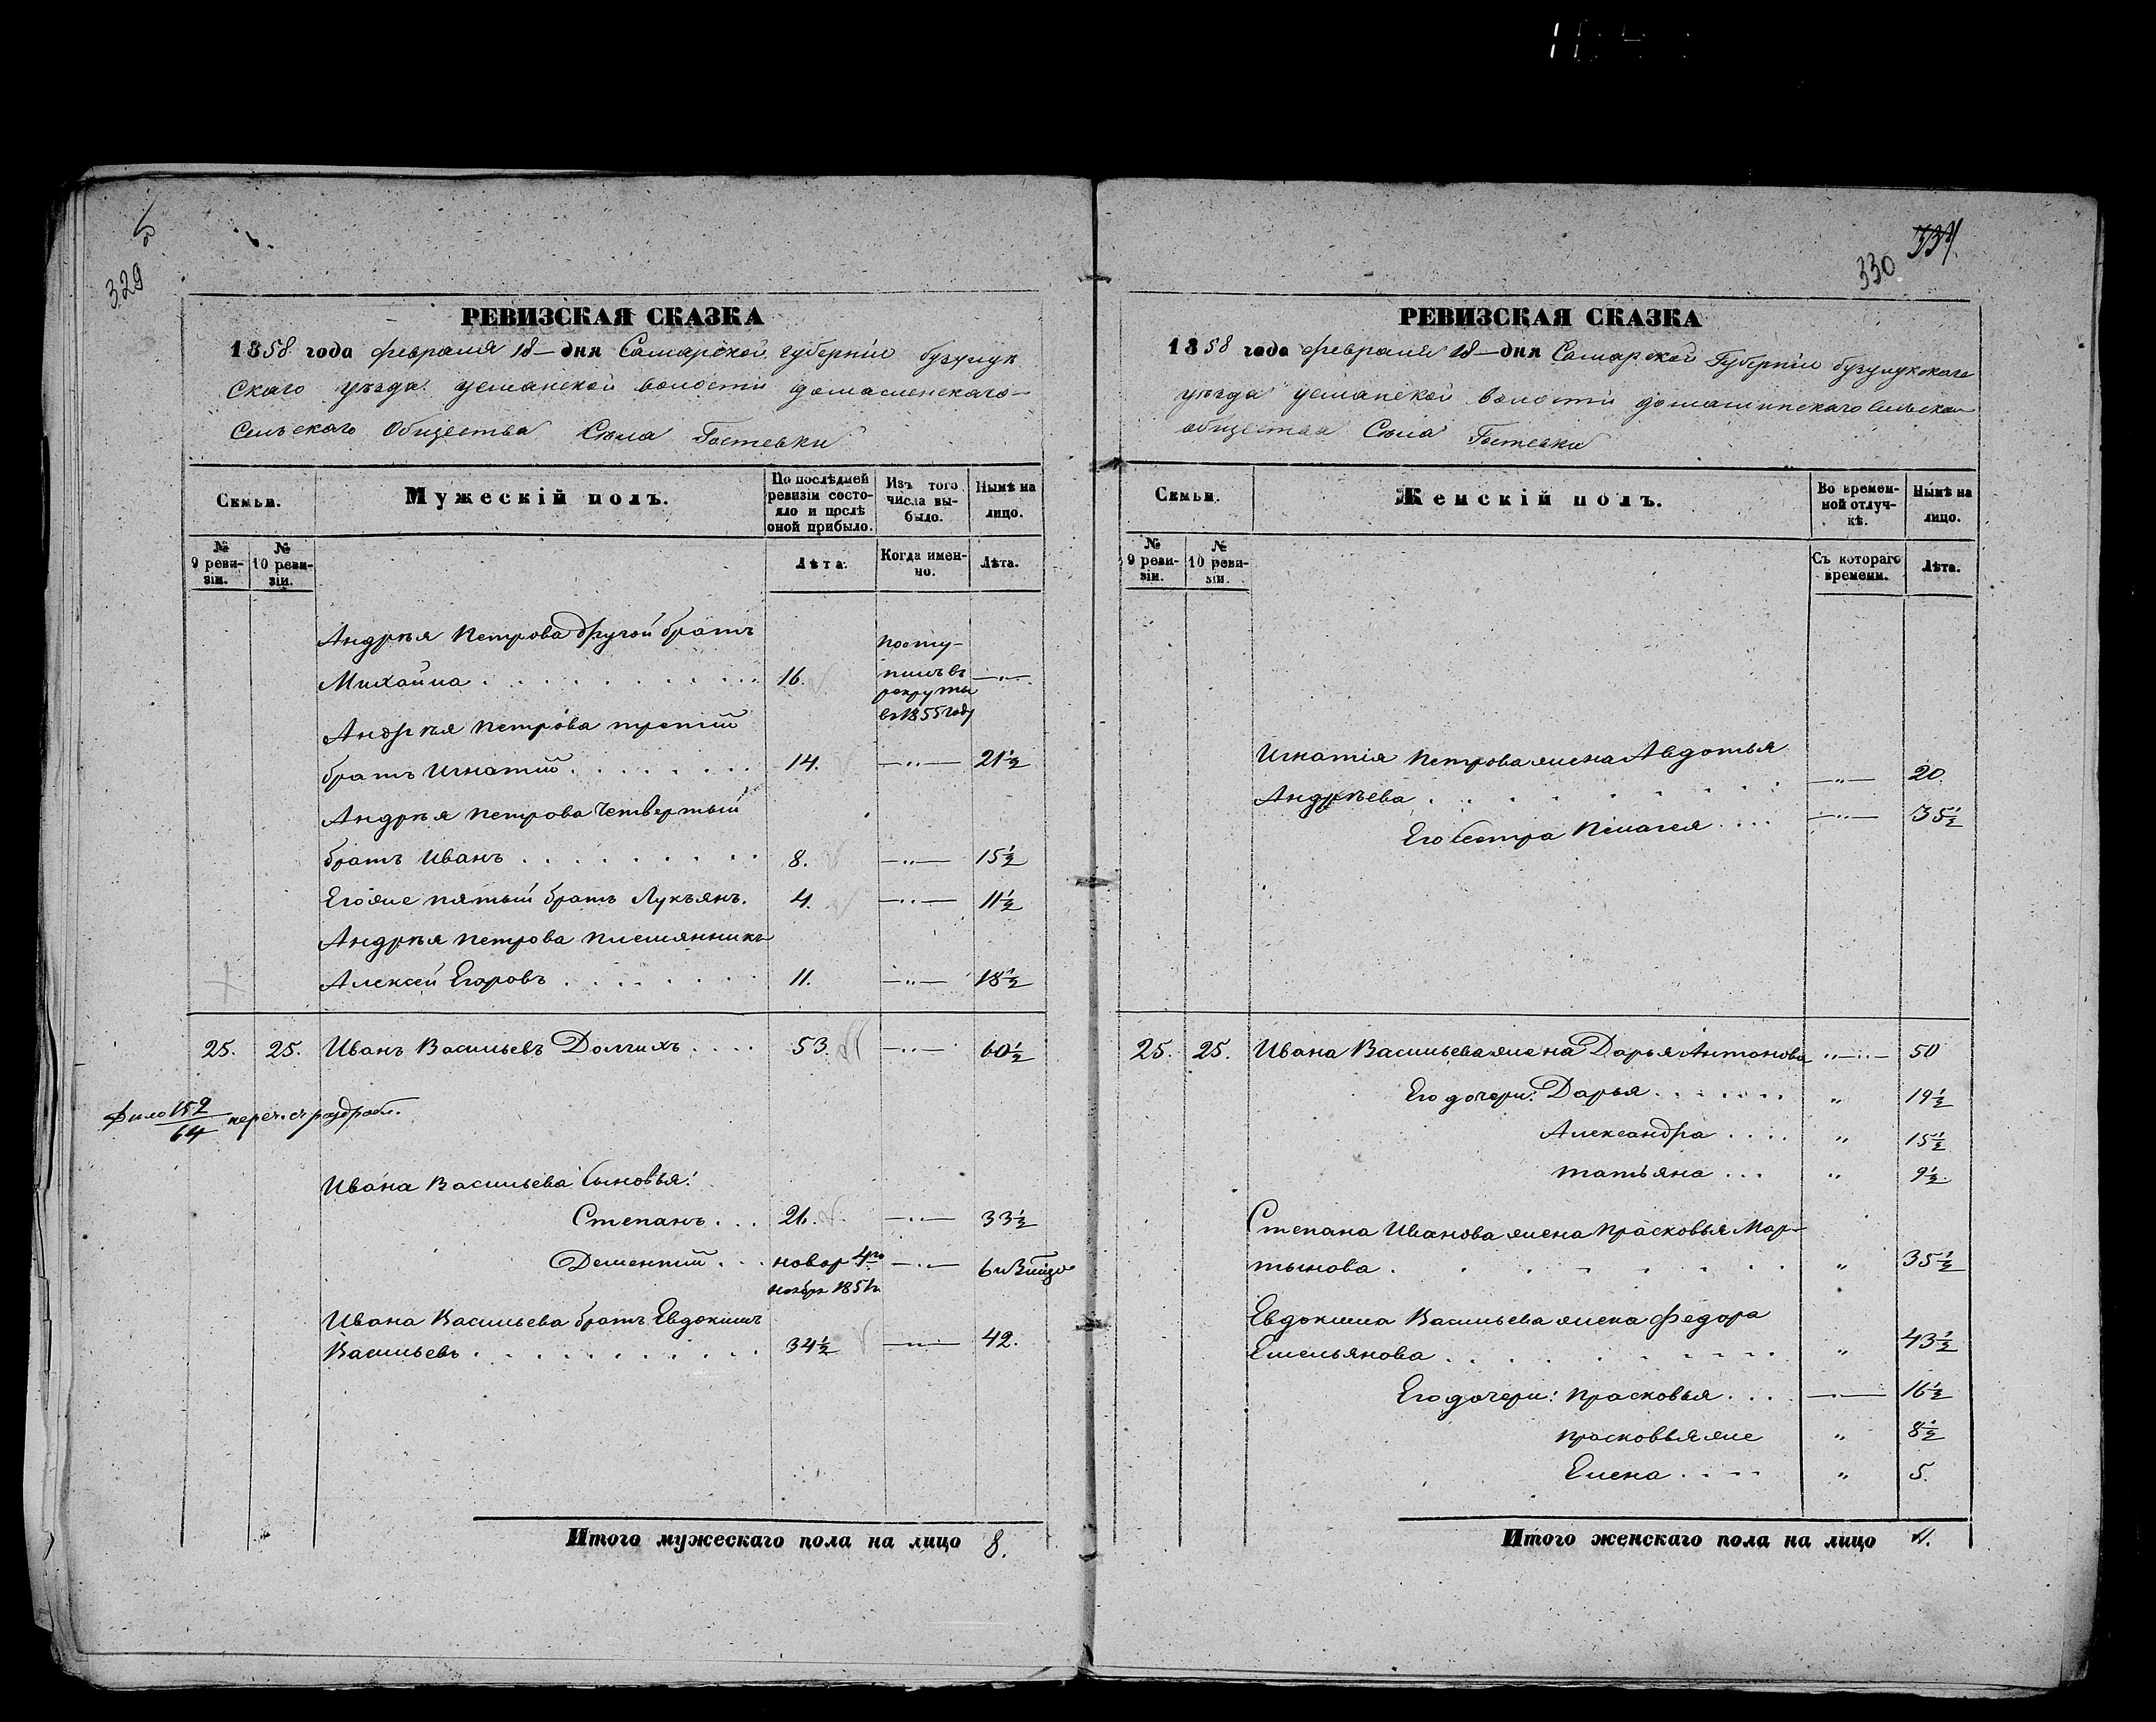 329
РЕВИЗСКАЯ СКАЗКА
1858 года февраля 18 — дня Самарской губернiи бузулук
скаго уѣзда усманской волости домашенскаго
Сельскаго Общества Села Гостевки
Семьи.
Мужескiй полъ.
По послѣдней ревизiи состояло и послѣ оной прибыло.
Изъ того числа выбыло.
Нынѣ на лицо.
№ 9 ревизiи.
№ 10 ревизiи.
Лѣта.
Когда именно.
Лѣта.
Андрѣя Петрова другой братъ
Михайла . . . 16. посту-
пилъ въ
рекруты
въ 1855 году —"—
Андрѣя Петрова третiй
братъ Игнатiй . . . 14. —"— 21½
Андрѣя Петрова четвертый
братъ Иванъ . . . 8. —"— 15½
Его же пятый братъ Лукъянъ. 4. —"— 11½
Андрѣя Петрова племянникъ
Алексѣй Егоровъ . . . 11. —"— 18½
25. 25. Иванъ Васильевъ Долгихъ . . . . 53. —"— 60½
152/64
Ивана Васильева сыновья:
Степанъ . . . 26. —"— 33½
Дементiй . . . новор 4го —"—
ноября 1851г.
Ивана Васильева братъ Евдокимъ
Васильевъ . . . 34½ —"— 42.
Итого мужескаго пола на лицо 8.
330
РЕВИЗСКАЯ СКАЗКА
1858 года февраля 18 — дня Самарской Губернiи бузулукскаго
уѣзда усманской волости домашинскаго сельскаго
общества Села Гостевки
Семьи.
Женскiй полъ.
Во временной отлучкѣ.
Нынѣ на лицо.
№ 9 ревизiи.
№ 10 ревизiи.
Съ котораго времени.
Лѣта.
Игнатiя Петрова жена Авдотья
Андрѣева . . . —"— 20.
Его сестра Пелагея . . . . —"— 35½
25. 25. Ивана Васильева жена Дарья Антонова "—" 50
Его дочери: Дарья . . . " 19½
Александра . . . . " 15½
Татьяна . . . " 9½
Степана Иванова жена Прасковья Мар-
тынова . . . " 35½
Евдокима Васильева жена Федора
Емельянова . . . " 43½
Его дочери: Прасковья . . . —"— 16½
Прасковья же " 8½
Елена . . . . " 5.
Итого женскаго пола на лицо 11.